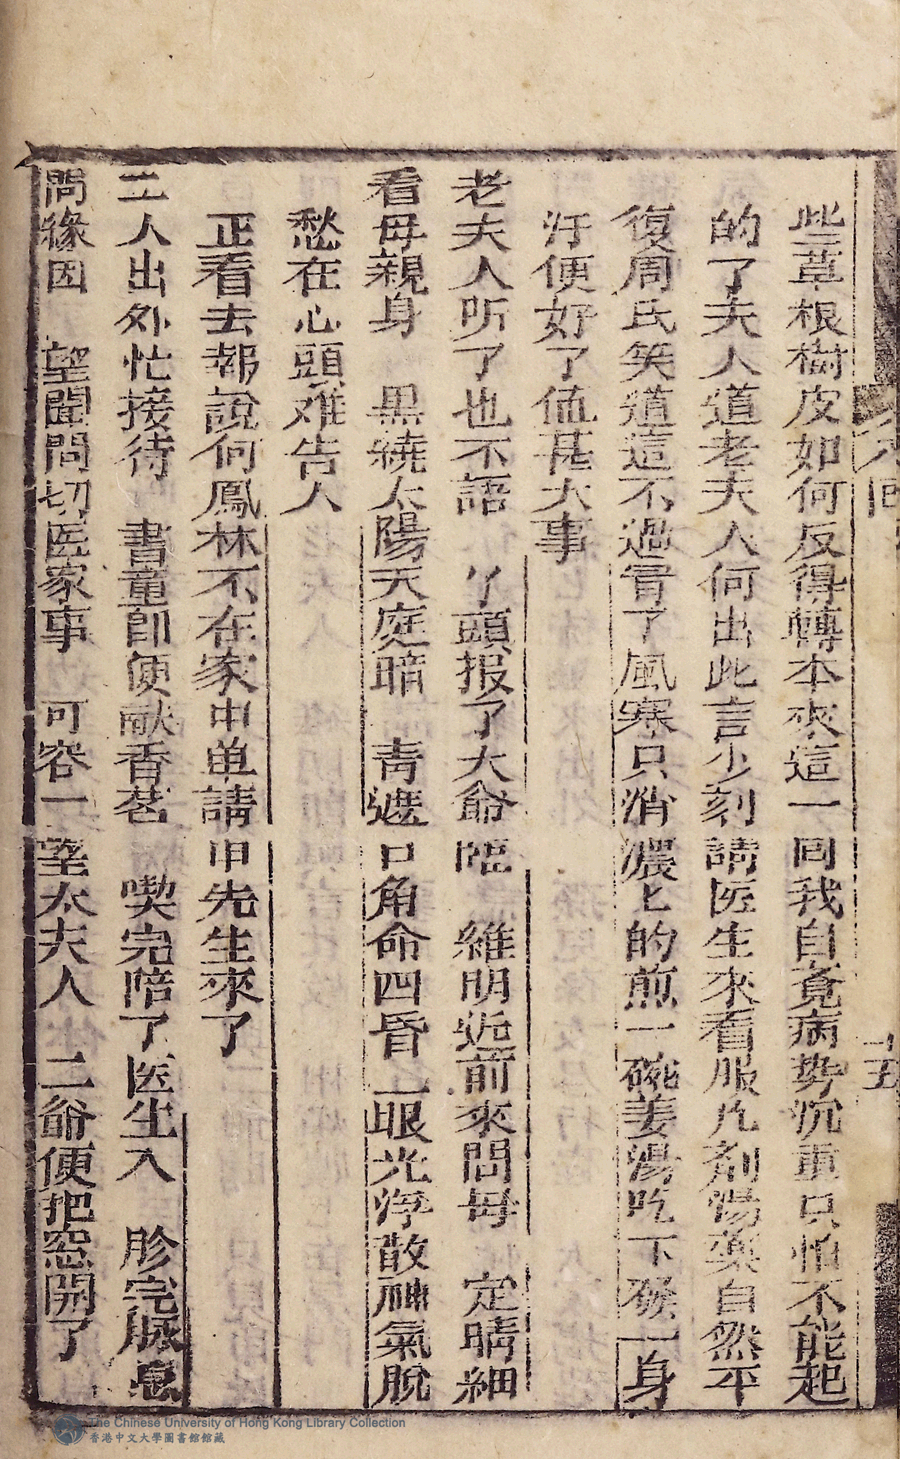 些草根樹皮如何反得轉本來這一同我自覔病势沉重只怕不能起
的了夫人道老夫人何出此言少刻請医生來看服几剤湯藥自然平
復周氏笑道這不過冐了風寒只消濃匕的煎一碗姜湯吃下發一身
汗便好了値甚大事
老夫人听了也不語 丫頭报了大爺 維明近前來問母 定睛細
看母親身 黒繞太陽天庭暗 青遮口角命四昏 眼光浮散神氣脫
愁在心頭难告人
正看去報說何鳳林不在家中单請甲先生來了
二人出外忙接待 書童即便献香茗 喫完陪了医生入 胗完脉息
問緣因 望聞問切医家事 可容一望太夫人 二爺便把窓開了
回
十五
The Chinese University of Hong Kong Library Collection
香港中文大學圖書館館藏